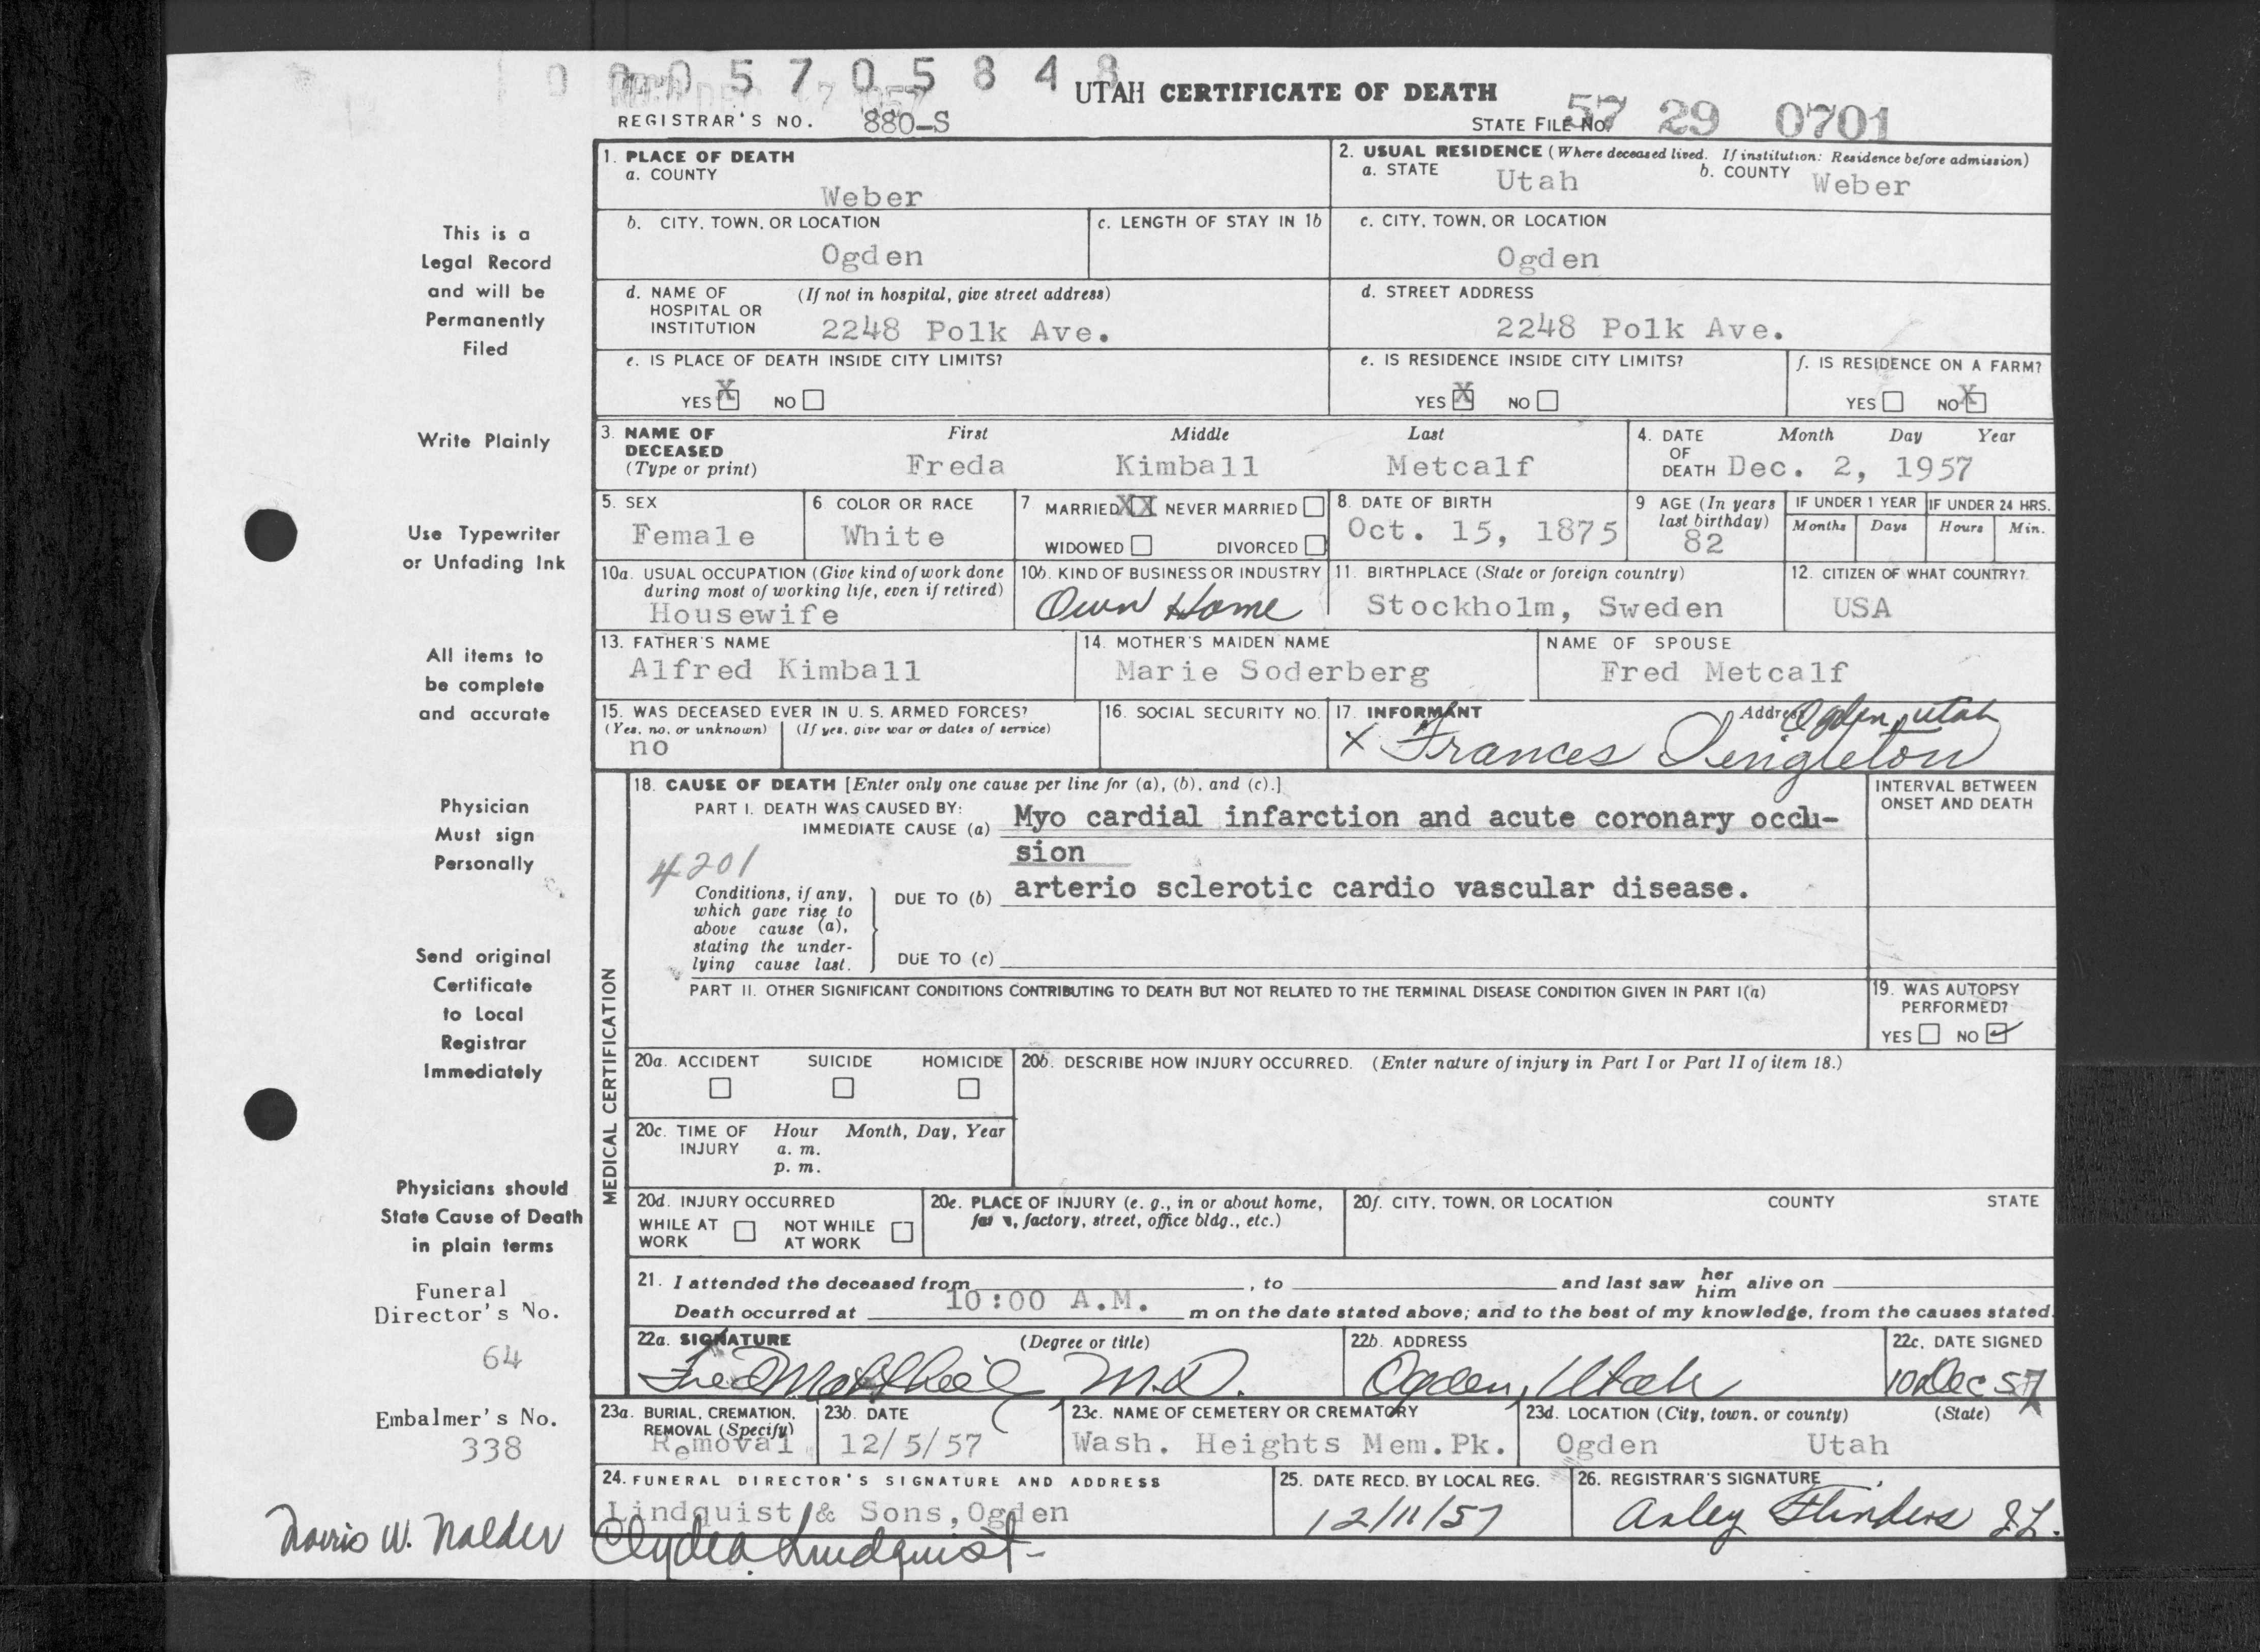 0 5 7 0 5 8 4 8
UTAH CERTIFICATE OF DEATH
REGISTRAR'S NO. 880-S
STATE FILE NO. 57 29 0701
This is a
Legal Record
and will be
Permanently
Filed
Write Plainly
Use Typewriter
or Unfading Ink
All items to
be complete
and accurate
Physician
Must sign
Personally
Send original
Certificate
to Local
Registrar
Immediately
Physicians should
State Cause of Death
in plain terms
Funeral
Director's No.
64
Embalmer's No.
338
Norris W. Nalder
1. PLACE OF DEATH
a. COUNTY
Weber
2. USUAL RESIDENCE (Where deceased lived. If institution: Residence before admission)
a. STATE Utah b. COUNTY Weber
b. CITY, TOWN, OR LOCATION
Ogden
c. LENGTH OF STAY IN 1b
c. CITY, TOWN, OR LOCATION
Ogden
d. NAME OF (If not in hospital, give street address)
HOSPITAL OR
INSTITUTION 2248 Polk Ave.
d. STREET ADDRESS
2248 Polk Ave.
e. IS PLACE OF DEATH INSIDE CITY LIMITS?
YES X NO
e. IS RESIDENCE INSIDE CITY LIMITS?
YES X NO
f. IS RESIDENCE ON A FARM?
YES NO X
3. NAME OF First Middle Last
DECEASED
(Type or print) Freda Kimball Metcalf
4. DATE Month Day Year
OF
DEATH Dec. 2, 1957
5. SEX
Female
6 COLOR OR RACE
White
7 MARRIED XX NEVER MARRIED
WIDOWED DIVORCED
8. DATE OF BIRTH
Oct. 15, 1875
9 AGE (In years
last birthday)
82
IF UNDER 1 YEAR IF UNDER 24 HRS.
Months Days Hours Min.
10a. USUAL OCCUPATION (Give kind of work done
during most of working life, even if retired)
Housewife
10b. KIND OF BUSINESS OR INDUSTRY
Own Home
11. BIRTHPLACE (State or foreign country)
Stockholm, Sweden
12. CITIZEN OF WHAT COUNTRY?
USA
13. FATHER'S NAME
Alfred Kimball
14. MOTHER'S MAIDEN NAME
Marie Soderberg
NAME OF SPOUSE
Fred Metcalf
15. WAS DECEASED EVER IN U. S. ARMED FORCES?
(Yes, no, or unknown) (If yes, give war or dates of service)
no
16. SOCIAL SECURITY NO.
17. INFORMANT Address Ogden, Utah
X Frances Singleton
MEDICAL CERTIFICATION
18. CAUSE OF DEATH [Enter only one cause per line for (a), (b), and (c).]
INTERVAL BETWEEN
ONSET AND DEATH
PART I. DEATH WAS CAUSED BY:
IMMEDIATE CAUSE (a) Myo cardial infarction and acute coronary occlu-
sion
4201
Conditions, if any,
which gave rise to
above cause (a),
stating the under-
lying cause last.
DUE TO (b) arterio sclerotic cardio vascular disease.
DUE TO (c)
PART II. OTHER SIGNIFICANT CONDITIONS CONTRIBUTING TO DEATH BUT NOT RELATED TO THE TERMINAL DISEASE CONDITION GIVEN IN PART I(a)
19. WAS AUTOPSY
PERFORMED?
YES NO ✓
20a. ACCIDENT SUICIDE HOMICIDE
20b. DESCRIBE HOW INJURY OCCURRED. (Enter nature of injury in Part I or Part II of item 18.)
20c. TIME OF Hour Month, Day, Year
INJURY a. m.
p. m.
20d. INJURY OCCURRED
WHILE AT NOT WHILE
WORK AT WORK
20e. PLACE OF INJURY (e. g., in or about home,
factory, street, office bldg., etc.)
20f. CITY, TOWN, OR LOCATION COUNTY STATE
21. I attended the deceased from , to and last saw her him alive on
Death occurred at 10:00 A.M. m on the date stated above; and to the best of my knowledge, from the causes stated.
22a. SIGNATURE (Degree or title)
M.D.
22b. ADDRESS
Ogden, Utah
22c. DATE SIGNED
10 Dec 57
23a. BURIAL, CREMATION,
REMOVAL (Specify)
Removal
23b. DATE
12/5/57
23c. NAME OF CEMETERY OR CREMATORY
Wash. Heights Mem.Pk.
23d. LOCATION (City, town, or county) (State)
Ogden Utah
24. FUNERAL DIRECTOR'S SIGNATURE AND ADDRESS
Lindquist & Sons, Ogden
Clyde Lindquist
25. DATE RECD. BY LOCAL REG.
12/11/57
26. REGISTRAR'S SIGNATURE
Arley Flinders